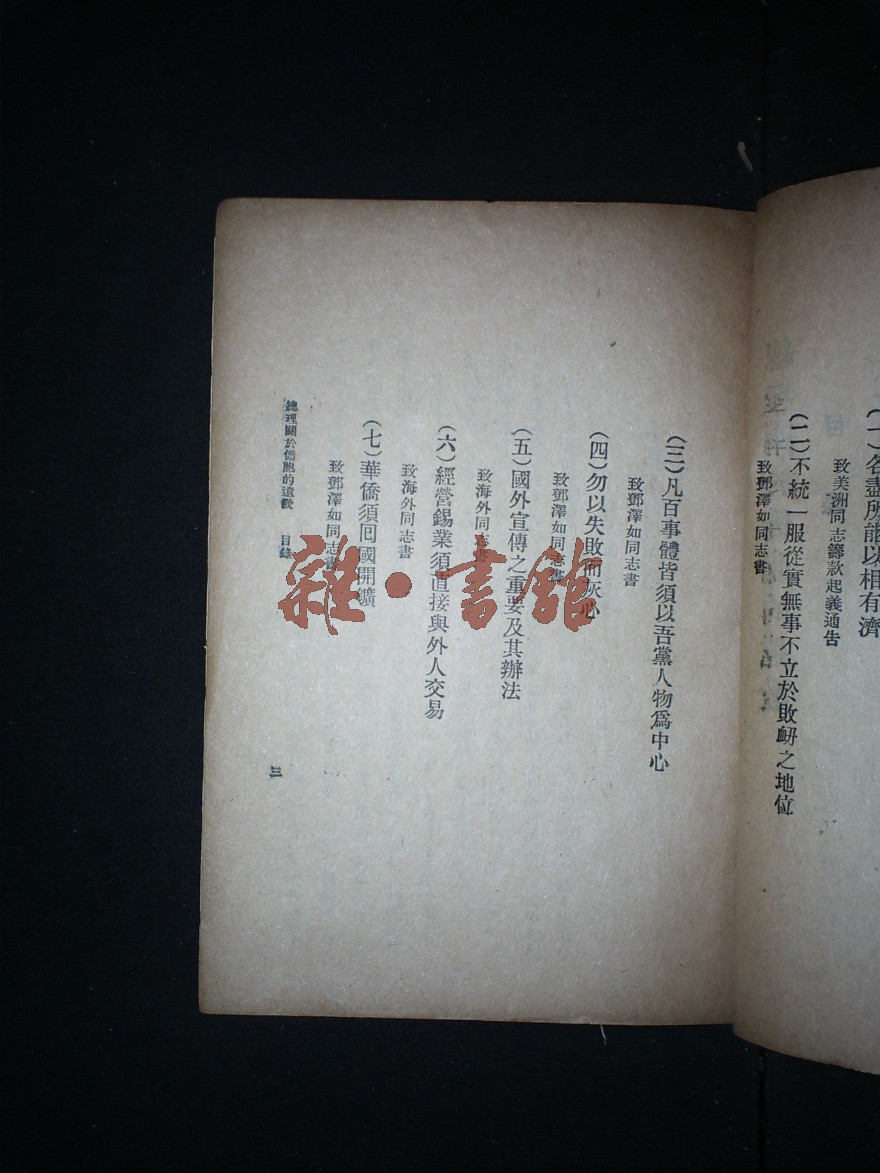 (一)各盡所能以相有濟
致美洲同志籌款起義通告
(二)不統一服從實無事不立於敗衂之地位
致鄧澤如同志書
(三)凡百事體皆須以吾黨人物爲中心
致鄧澤如同志書
(四)勿以失敗而灰心
致鄧澤如同志書
(五)國外宣傳之重要及其辦法
致海外同志書
(六)經營錫業須直接與外人交易
致海外同志書
(七)華僑須囘國開鑛
致鄧澤如同志書
總理關於僑胞的遺敎 目錄
三
雜·書館